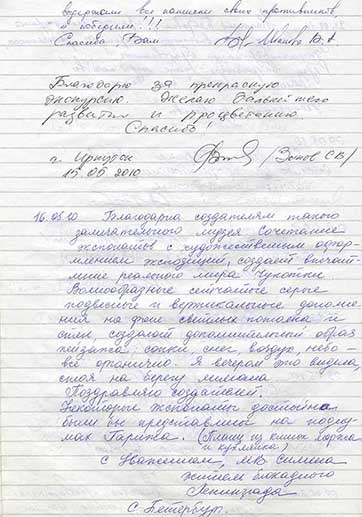 выдержали все
и победили!!!
Спасибо Вам
Благодарю за прекрасную
экскурсию. Желаю дальнейшего
развития и процветания
Спасибо!
г. Иркутск
15 05 2010
16.05.10 Благодарна создателям такого
замечательного музея Сочетание
экспонатов с художественным офор-
млением экспозиций, создает впечат-
ление реального мира Чукотки
Волнообразные сетчатые серые
подвесные и вертикальные дополне-
ния на фоне светлых потолка и
стен, создают дополнительный образ
пейзажа: сопки, снег, воздух, небо
всё органично. Я вечером это видела,
стоя на берегу лимана
Поздравляю создателей.
Некоторые экспонаты достойны
были бы представлены на подиу-
мах Парижа. (Плащ из кишок моржа
и кухлянка)
С уважением, МВ
жители блокадного
Ленинграда
С Петербург.